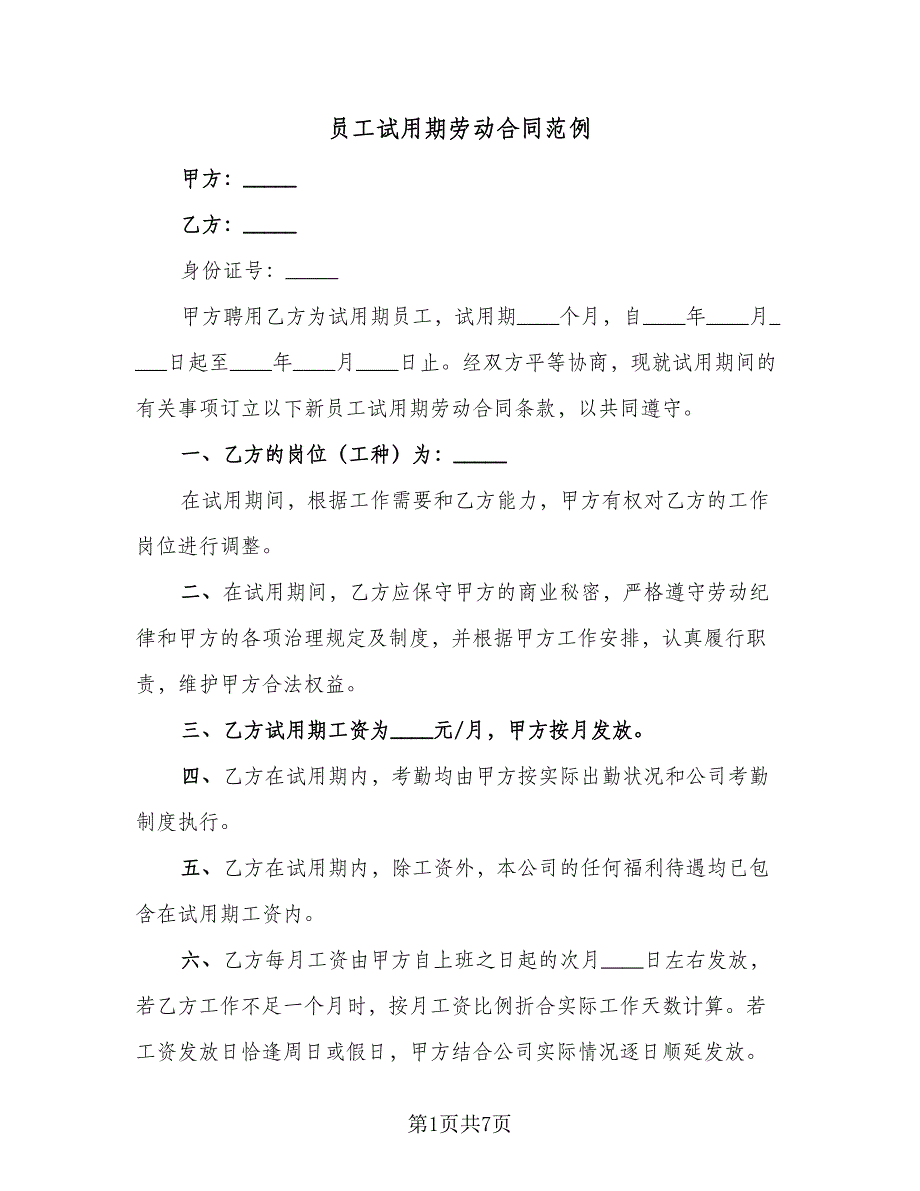 员工试用期劳动合同范例
甲方：_____
乙方：_____
身份证号：_____
甲方聘用乙方为试用期员工，试用期____个月，自____年____月_
___日起至____年____月____日止。经双方平等协商，现就试用期间的
有关事项订立以下新员工试用期劳动合同条款，以共同遵守。
一、乙方的岗位（工种）为：_____
在试用期间，根据工作需要和乙方能力，甲方有权对乙方的工作
岗位进行调整。
二、在试用期间，乙方应保守甲方的商业秘密，严格遵守劳动纪
律和甲方的各项治理规定及制度，并根据甲方工作安排，认真履行职
责，维护甲方合法权益。
三、乙方试用期工资为____元/月，甲方按月发放。
四、乙方在试用期内，考勤均由甲方按实际出勤状况和公司考勤
制度执行。
五、乙方在试用期内，除工资外，本公司的任何福利待遇均已包
含在试用期工资内。
六、乙方每月工资由甲方自上班之日起的次月____日左右发放，
若乙方工作不足一个月时，按月工资比例折合实际工作天数计算。若
工资发放日恰逢周日或假日，甲方结合公司实际情况逐日顺延发放。
第1页共7页